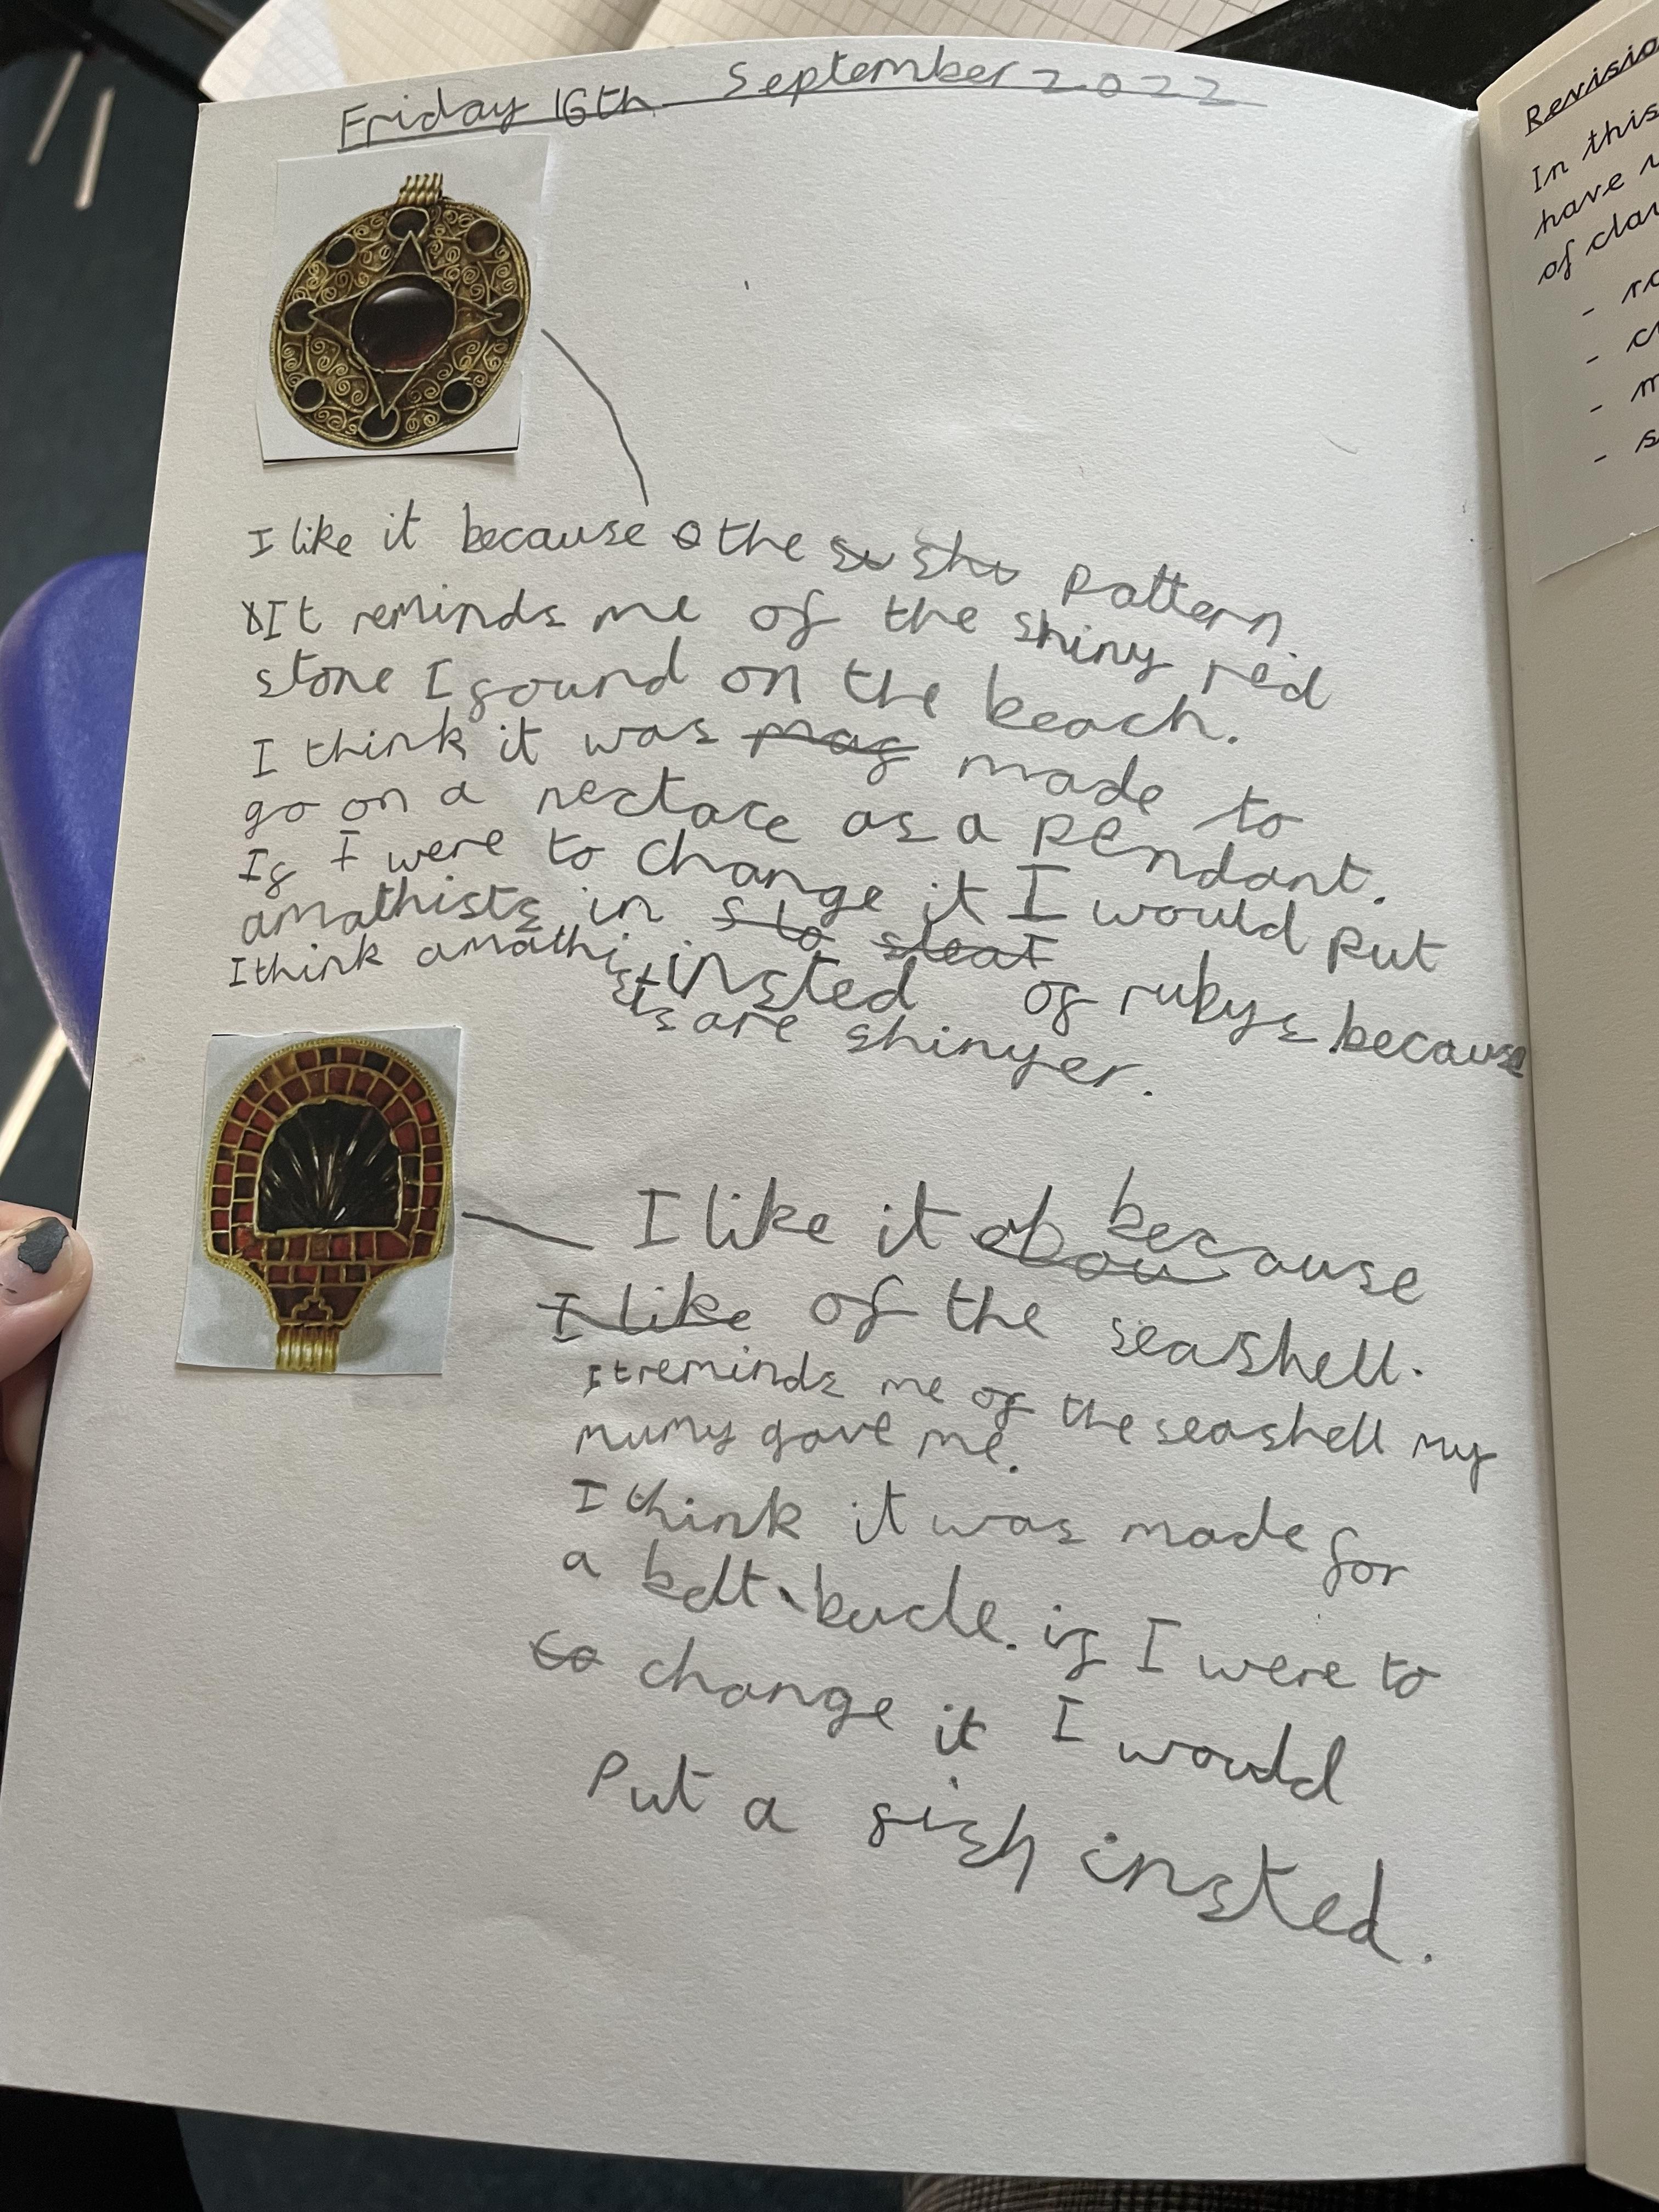 Friday 16th September 2022
I like it because the pattern
It reminds me of the shiny red
stone I found on the beach.
I think it was made to
go on a nectace as a pendant.
If I were to change it I would put
amathists in insted of rubys because
I think amathists are shinyer.
I like it because
of the seashell.
It reminds me of the seashell my
mumy gave me.
I think it was made for
a belt-bucle. if I were to
change it I would
Put a fish insted.
Revisio
In this
have
of clar
- ro
- c
- m
- s